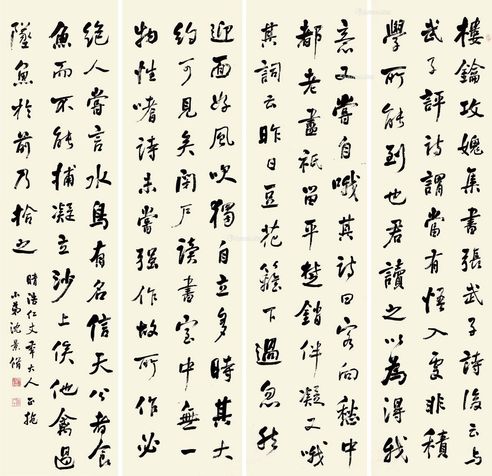 樓鑰攻媿集書張武子詩後云與
武子評詩謂當有悟入處非積
學所能到也君讀之以為得我
意又嘗自哦其詩曰客向愁中
都老盡祇留平楚銷伴凝又哦
其詞云昨日豆花籬下過忽然
迎面好風吹獨自立多時其大
約可見矣閉戶讀書室中無一
物性嗜詩未嘗强作故所作必
絕人嘗言水鳥有名信天公者食
魚而不能捕凝立沙上俟他禽過
墜魚於前乃拾之
浩仁丈大人正
小弟沈景脩